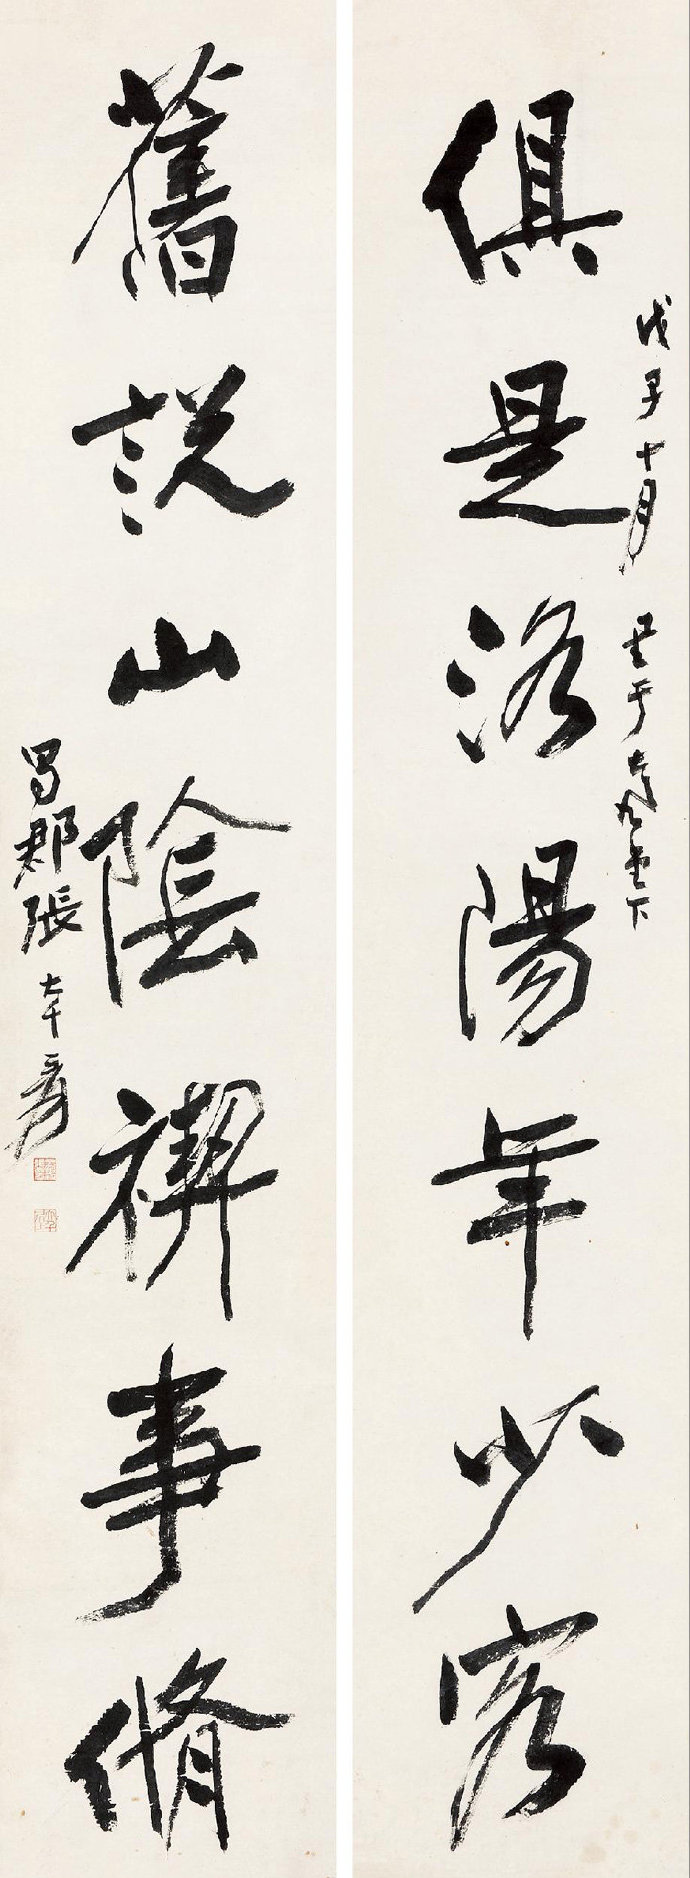 俱是洛陽年少客
戊子十月 呈于大風堂下
舊說山陰禊事脩
蜀郡張大千爰